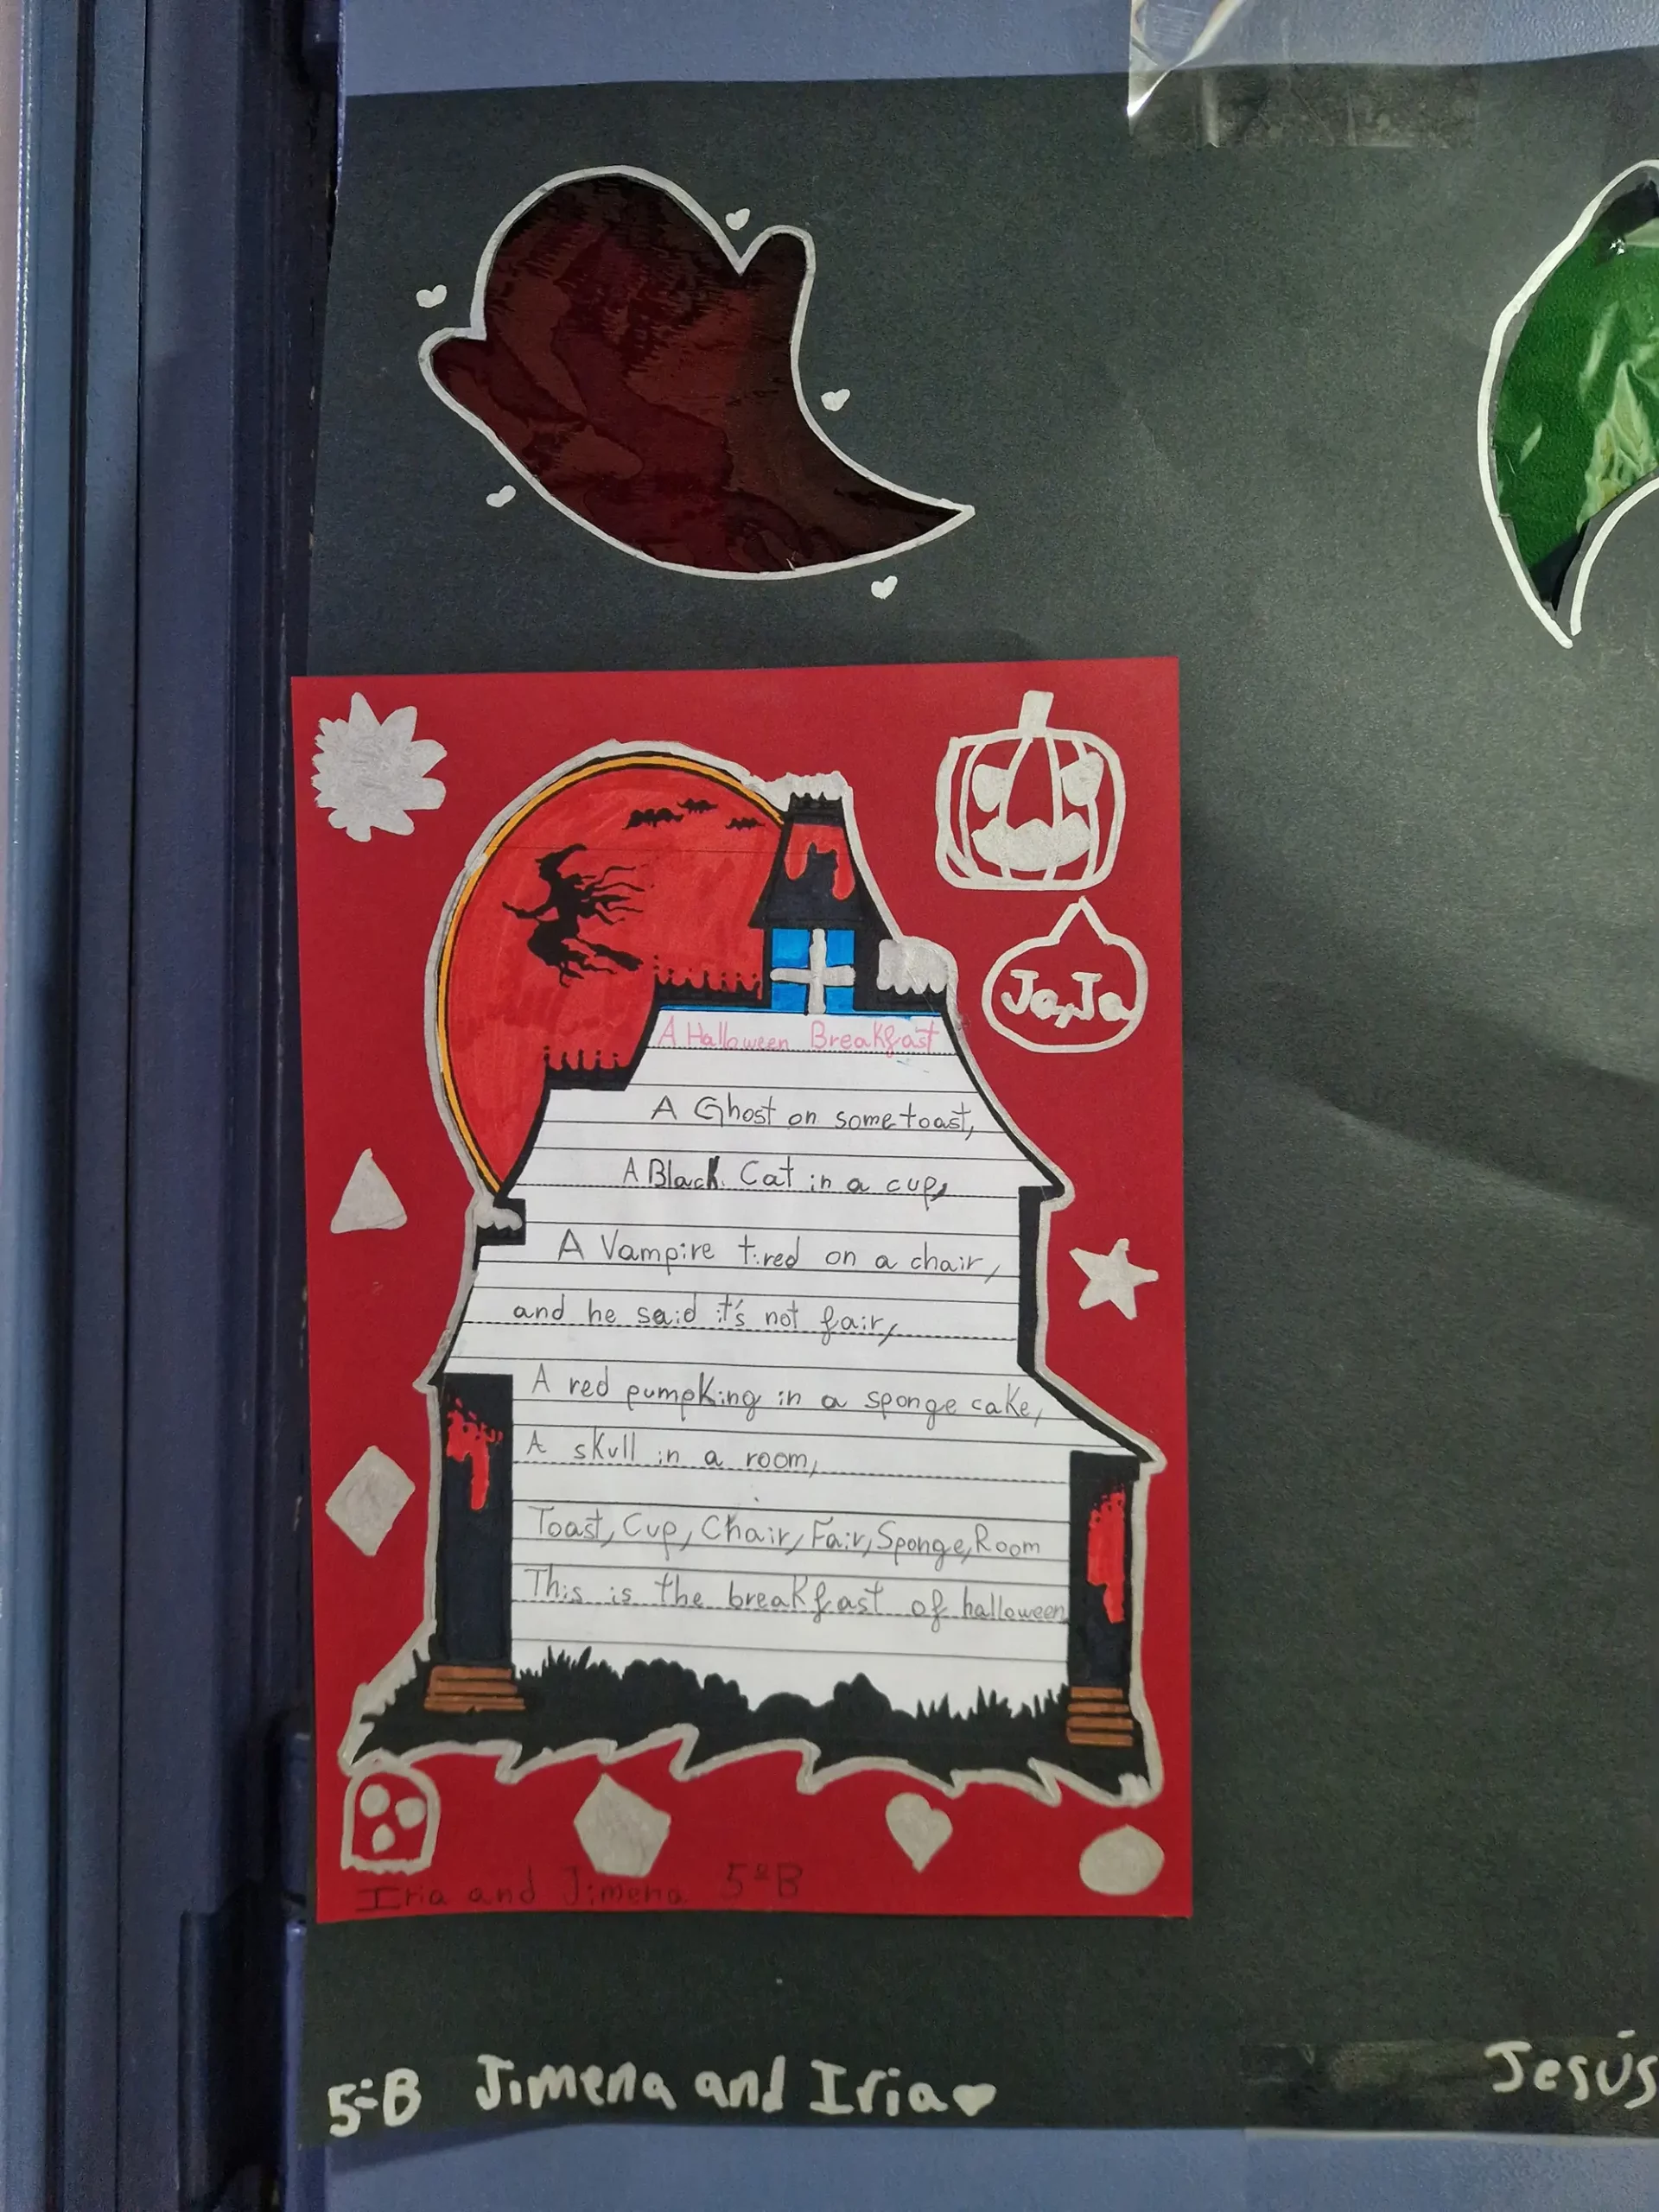 Ja, Ja
A Halloween Breakfast
A Ghost on some toast,
A Black Cat in a cup,
A Vampire tired on a chair,
and he said it's not fair,
A red pumpking in a sponge cake,
A skull in a room,
Toast, Cup, Chair, Fair, Sponge, Room
This is the breakfast of halloween
Iria and Jimena 5ºB
5ºB Jimena and Iria
Jesús